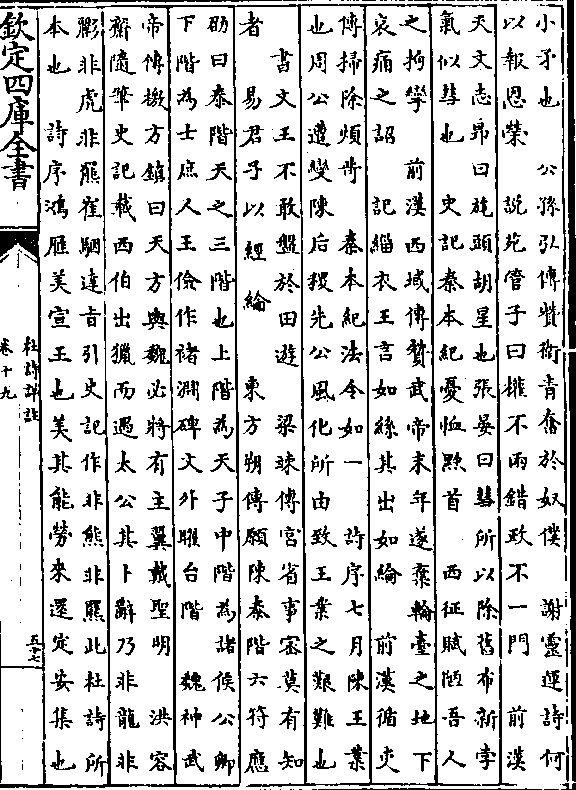 小矛也 公孫弘傳贊衛青奮於奴僕 謝靈運詩何
以報恩榮 說苑管子曰權不兩錯政不一門 前漢
天文志昴曰旄頭胡星也張晏曰彗所以除舊布新孛
氣似彗也 史記秦本紀憂恤黔首 西征賦陋吾人
之拘攣 前漢西域傳贊武帝末年遂棄輪臺之地下
哀痛之詔 記緇衣王言如絲其出如綸 前漢循吏
傳掃除煩苛 秦本紀法令如一 詩序七月陳王業
也周公遭變陳后稷先公風化所由致王業之艱難也
書文王不敢盤於田遊 梁竦傳宮省事密莫有知
者 易君子以經綸 東方朔傳願陳泰階六符應
劭曰泰階天之三階也上階為天子中階為諸侯公卿
下階為士庶人王儉作褚淵碑文外曜台階 魏神武
帝傳檄方鎮曰天方與魏必將有主翼戴聖明 洪容
齋隨筆史記載西伯出獵而遇太公其卜辭乃非龍非
彲非虎非羆崔駰達旨引史記作非熊非羆此杜詩所
本也 詩序鴻雁美宣王也美其能勞來還定安集也
欽定四庫全書
杜詩詳註
卷十九
五十七